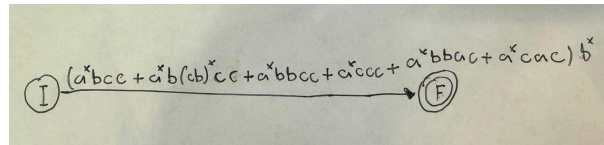 (a*bcc + a*b(cb)*cc + a*bbcc + a*ccc + a*bbac + a*cac) b*
I
F